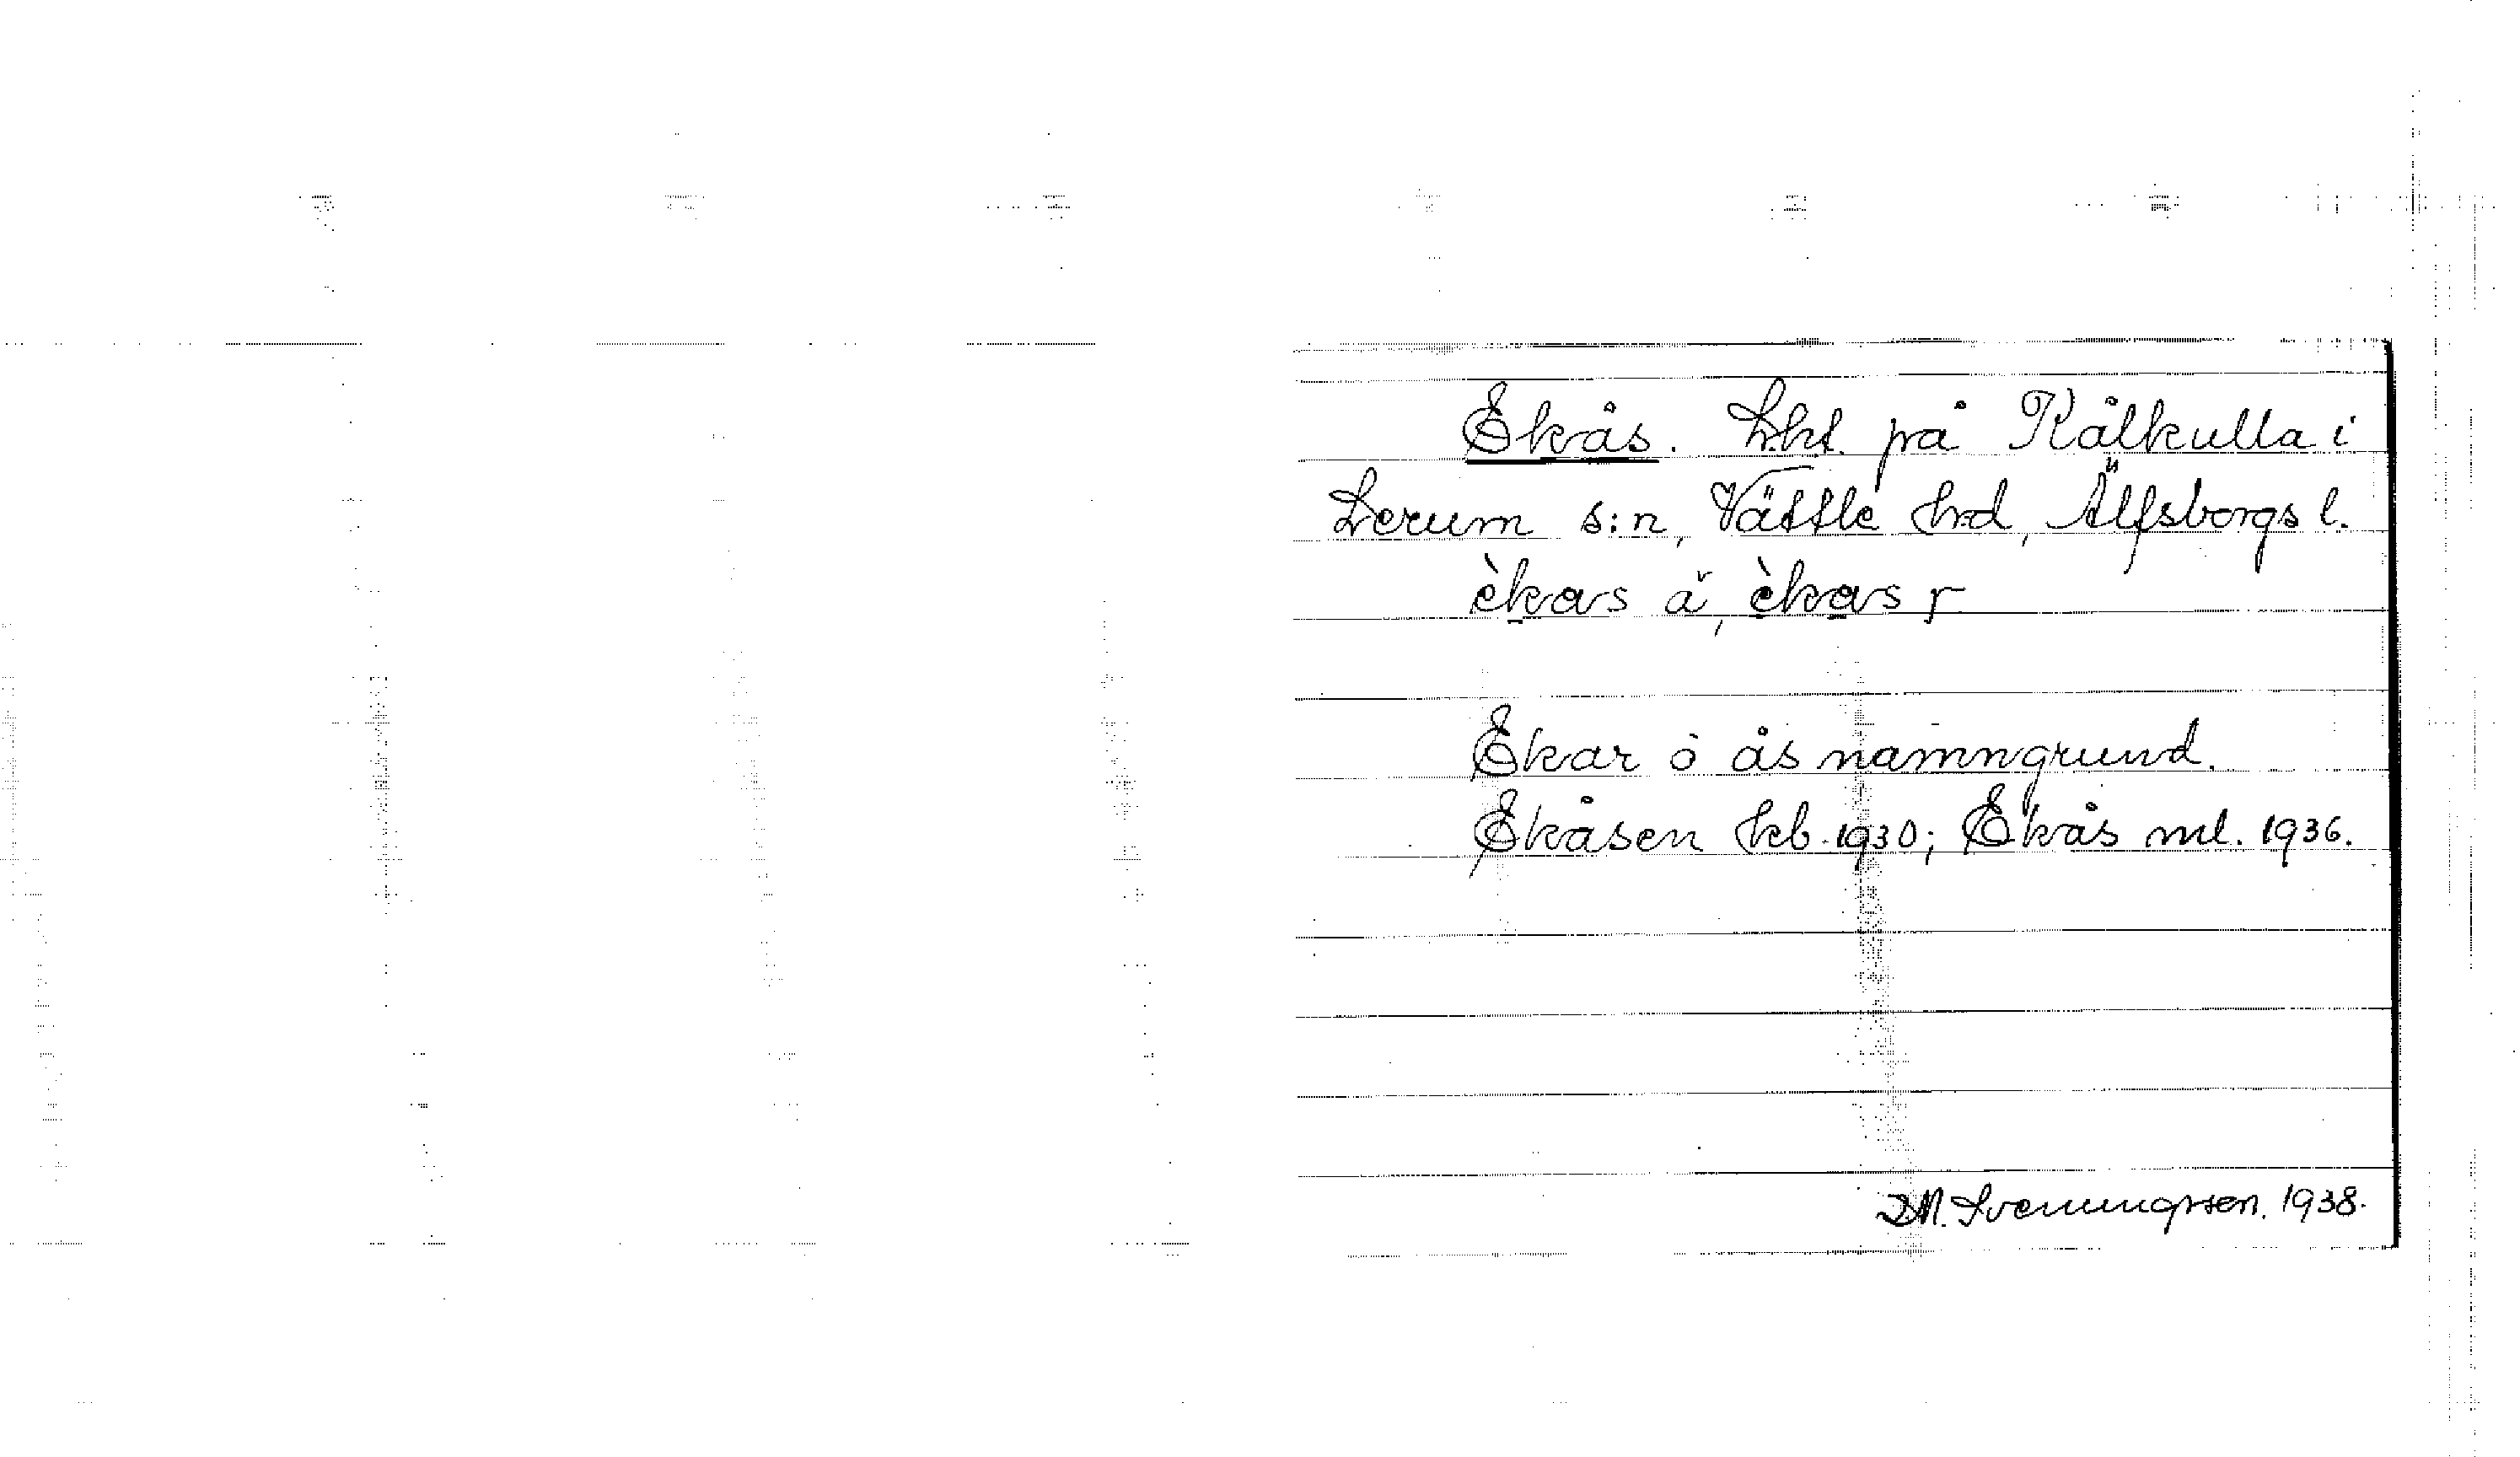 Ekås. Lht. på Kålkulla i
Lerum s:n, Vättle hrd, Älfsborgs l.
èkas ä̆, èkas r
Ekar o ås namngrund.
Ekåsen kb. 1930; Ekås ml. 1936.
D.M. Sveningsson. 1938.